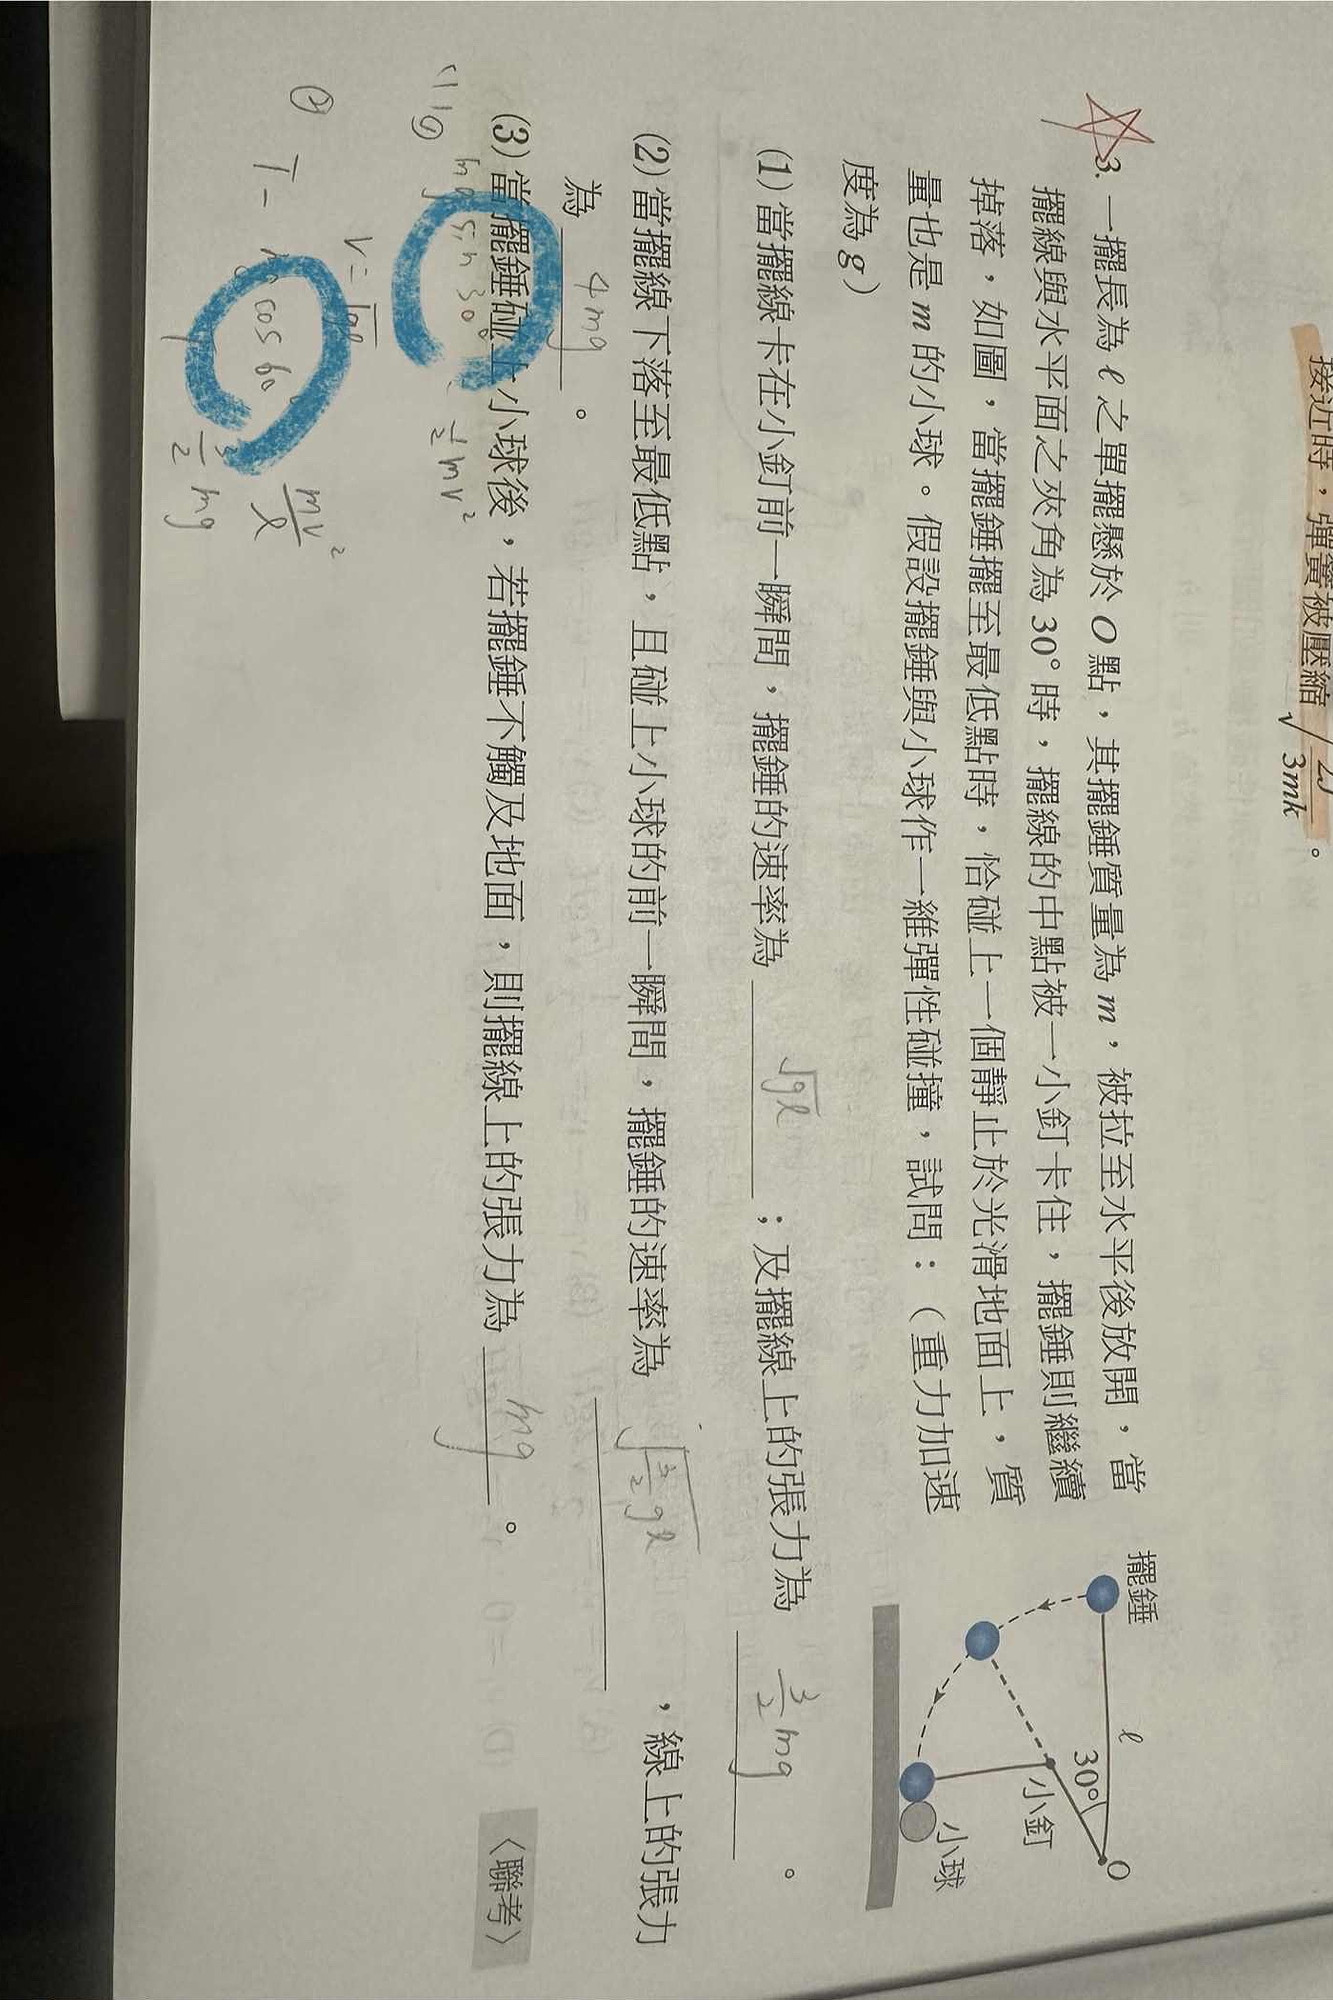 接近時，彈簧被壓縮
3mk
。
3. 一擺長為 ℓ 之單擺懸於 O 點，其擺錘質量為 m，被拉至水平後放開，當
擺線與水平面之夾角為 30° 時，擺線的中點被一小釘卡住，擺錘則繼續
掉落，如圖，當擺錘擺至最低點時，恰碰上一個靜止於光滑地面上，質
量也是 m 的小球。假設擺錘與小球作一維彈性碰撞，試問：（重力加速
度為 g）
擺錘
ℓ
30°
O
小釘
小球
(1) 當擺線卡在小釘前一瞬間，擺錘的速率為 √gℓ ；及擺線上的張力為 3/2 mg 。
(2) 當擺線下落至最低點，且碰上小球的前一瞬間，擺錘的速率為 √(3/2 gℓ) ，線上的張力
為 4mg 。
(3) 當擺錘碰上小球後，若擺錘不觸及地面，則擺線上的張力為 mg 。
〈聯考〉
(1) ①
mg sin 30°
1/2 mv²
v = √gℓ
② T -
cos 60
mv²/ℓ
3/2 mg